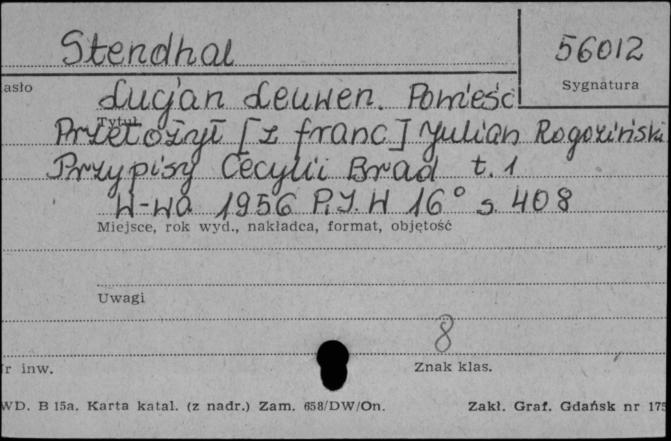 Stendhal
56012
asło
Sygnatura
Lucjan Leuwen. Powieść
Tytuł
Przełożył [z franc] Julian Rogoziński
Przypisy Cecylii Brad t. 1
W-wa 1956 P.I.W 16° s. 408
Miejsce, rok wyd., nakładca, format, objętość
Uwagi
8
r inw.
Znak klas.
WD. B 15a. Karta katal. (z nadr.) Zam. 658/DW/On.
Zakł. Graf. Gdańsk nr 175